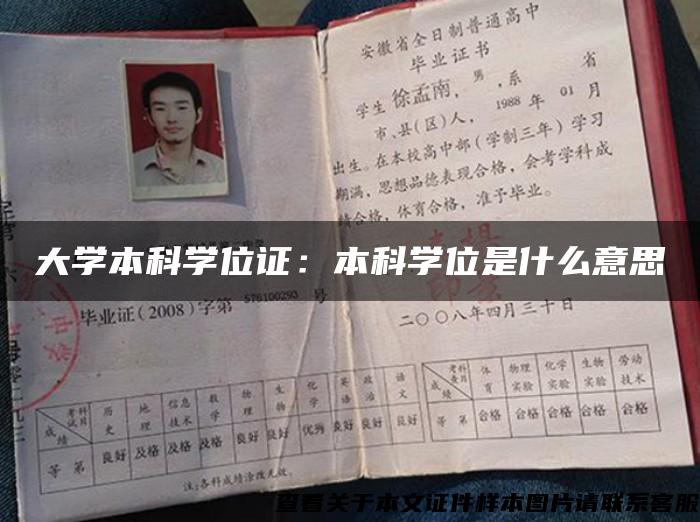 安徽省全日制普通高中
毕业证书
学生 徐孟南, 男, 系 省
市、县(区)人, 1988 年 01 月
出生。在本校高中部(学制三年)学习
期满, 思想品德表现合格, 会考学科成
绩合格, 体育合格, 准予毕业。
大学本科学位证：本科学位是什么意思
毕业证(2008)字第 576100293 号
二〇〇八年四月三十日
成绩 考试科目 历史 地理 信息技术 数学 物理 生物 化学 英语 政治 语文
等第 良好 及格 及格 及格 良好 良好 优秀 良好 良好 良好
注:各科成绩涂改无效。
成绩 考查科目 体育 物理实验 化学实验 生物实验 劳动技术
等第 合格 合格 合格 合格 合格
查看关于本文证件样本图片请联系客服